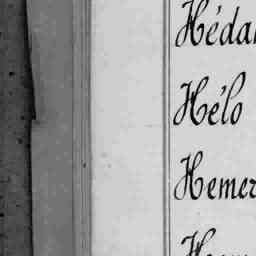 Hédal
Hélo
Hemer